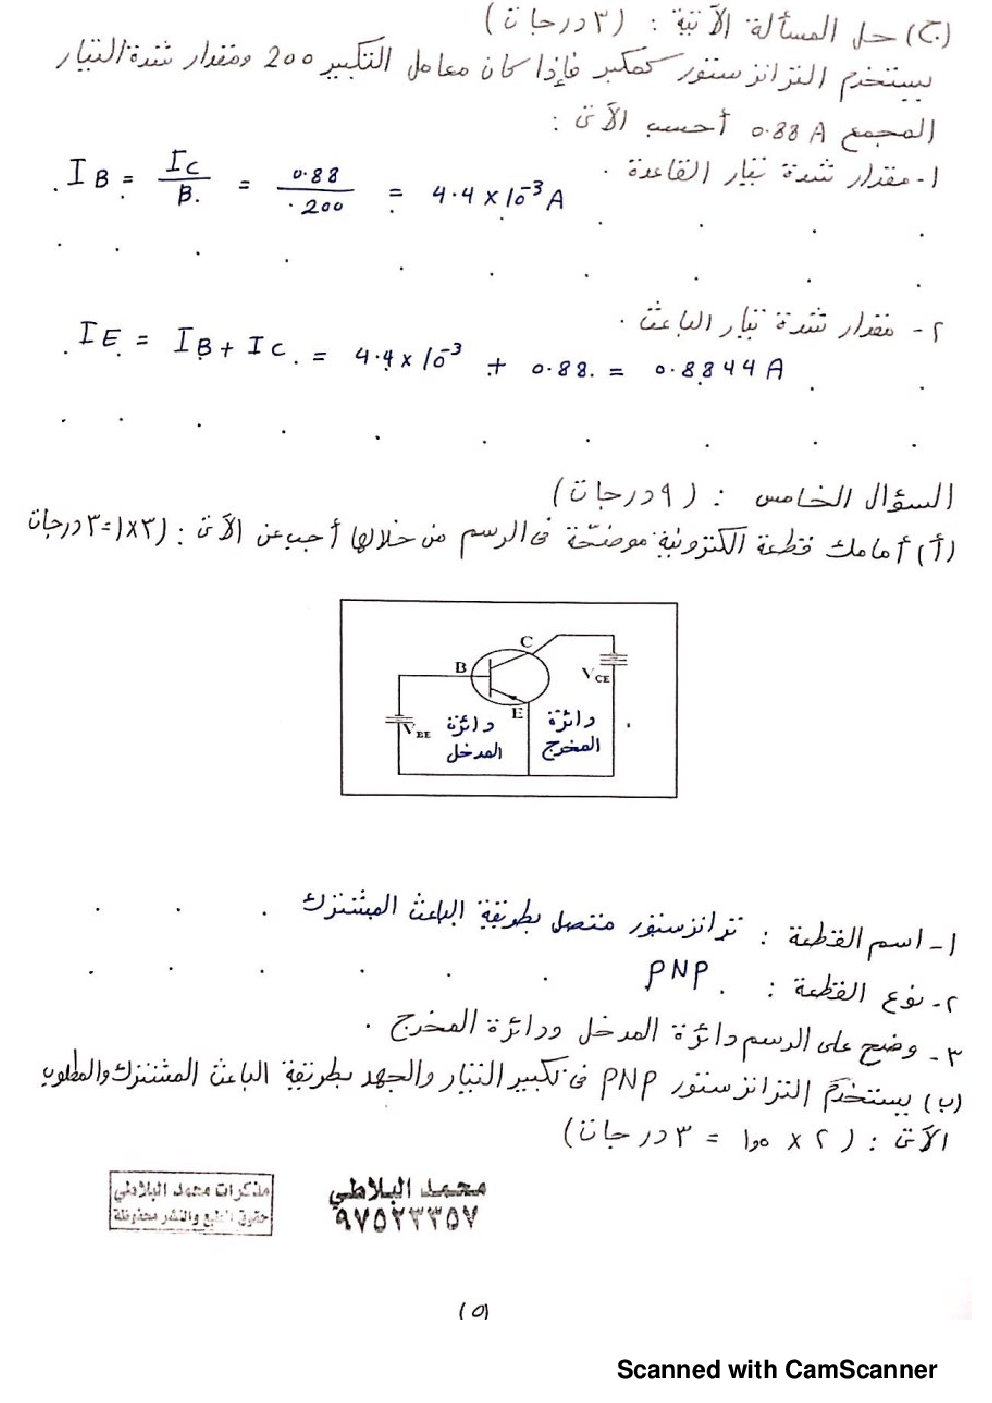 (ج) حل المسألة الآتية : (٣ درجات)
يستخدم الترانزستور كمكبر فإذا كان معامل التكبير 200 ومقدار شدة التيار
المجمع 0.88 A أحسب الآتى :
١- مقدار شدة تيار القاعدة .
IB = IC / β = 0.88 / 200 = 4.4 × 10⁻³ A
٢- مقدار شدة تيار الباعث .
IE = IB + IC = 4.4 × 10⁻³ + 0.88 = 0.8844 A
السؤال الخامس : (٩ درجات)
(أ) أمامك قطعة الكترونية موضحّة فى الرسم من خلالها أجب عن الآتى : (٣×١=٣ درجات
C
B
VCE
E
VBE
دائرة المدخل
دائرة المخرج
١- اسم القطعة : ترانزستور متصل بطريقة الباعث المشترك
٢- نوع القطعة : PNP
٣- وضح على الرسم دائرة المدخل ودائرة المخرج .
(ب) يستخدم الترانزستور PNP فى تكبير التيار والجهد بطريقة الباعث المشترك والمطلوب
الآتى : (٢ × ١٫٥ = ٣ درجات)
مذكرات محمد البلاطي
حقوق الطبع والنشر محفوظة
محمد البلاطي
٩٧٥٢٣٣٥٧
(٥)
Scanned with CamScanner